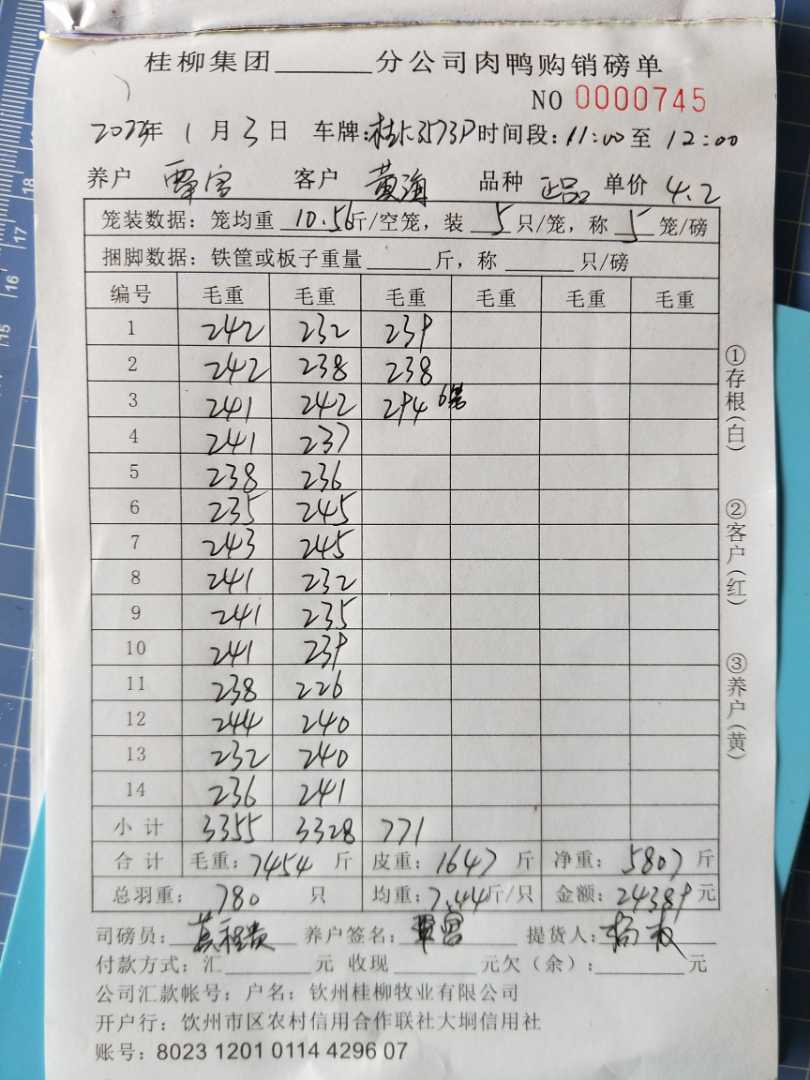 桂柳集团______分公司肉鸭购销磅单
NO 0000745
2022年 1月3日 车牌:桂K3573P 时间段:11:00至 12:00
养户 覃富 客户 黄海 品种 正品 单价 4.2
笼装数据：笼均重 10.56 斤/空笼，装 5 只/笼，称 5 笼/磅
捆脚数据：铁筐或板子重量______斤，称______只/磅
编号 毛重 毛重 毛重 毛重 毛重 毛重
1 242 232 239
2 242 238 238
3 241 242 294 6笼
4 241 237
5 238 236
6 235 245
7 243 245
8 241 232
9 241 235
10 241 239
11 238 226
12 244 240
13 232 240
14 236 241
小计 3355 3328 771
合计 毛重：7454 斤 皮重：1647 斤 净重：5807 斤
总羽重：780 只 均重：7.44 斤/只 金额：24389 元
司磅员： 养户签名：覃富 提货人：杨
付款方式：汇______元 收现______元欠（余）：______元
公司汇款帐号：户名：钦州桂柳牧业有限公司
开户行：钦州市区农村信用合作联社大垌信用社
账号：8023 1201 0114 4296 07
①存根（白） ②客户（红） ③养户（黄）
18
17
16
15